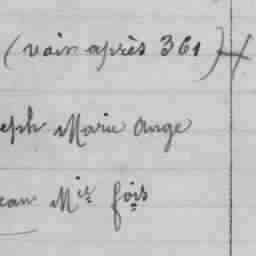 (voir après 361)
eph Marie Ange
ean Mie fois